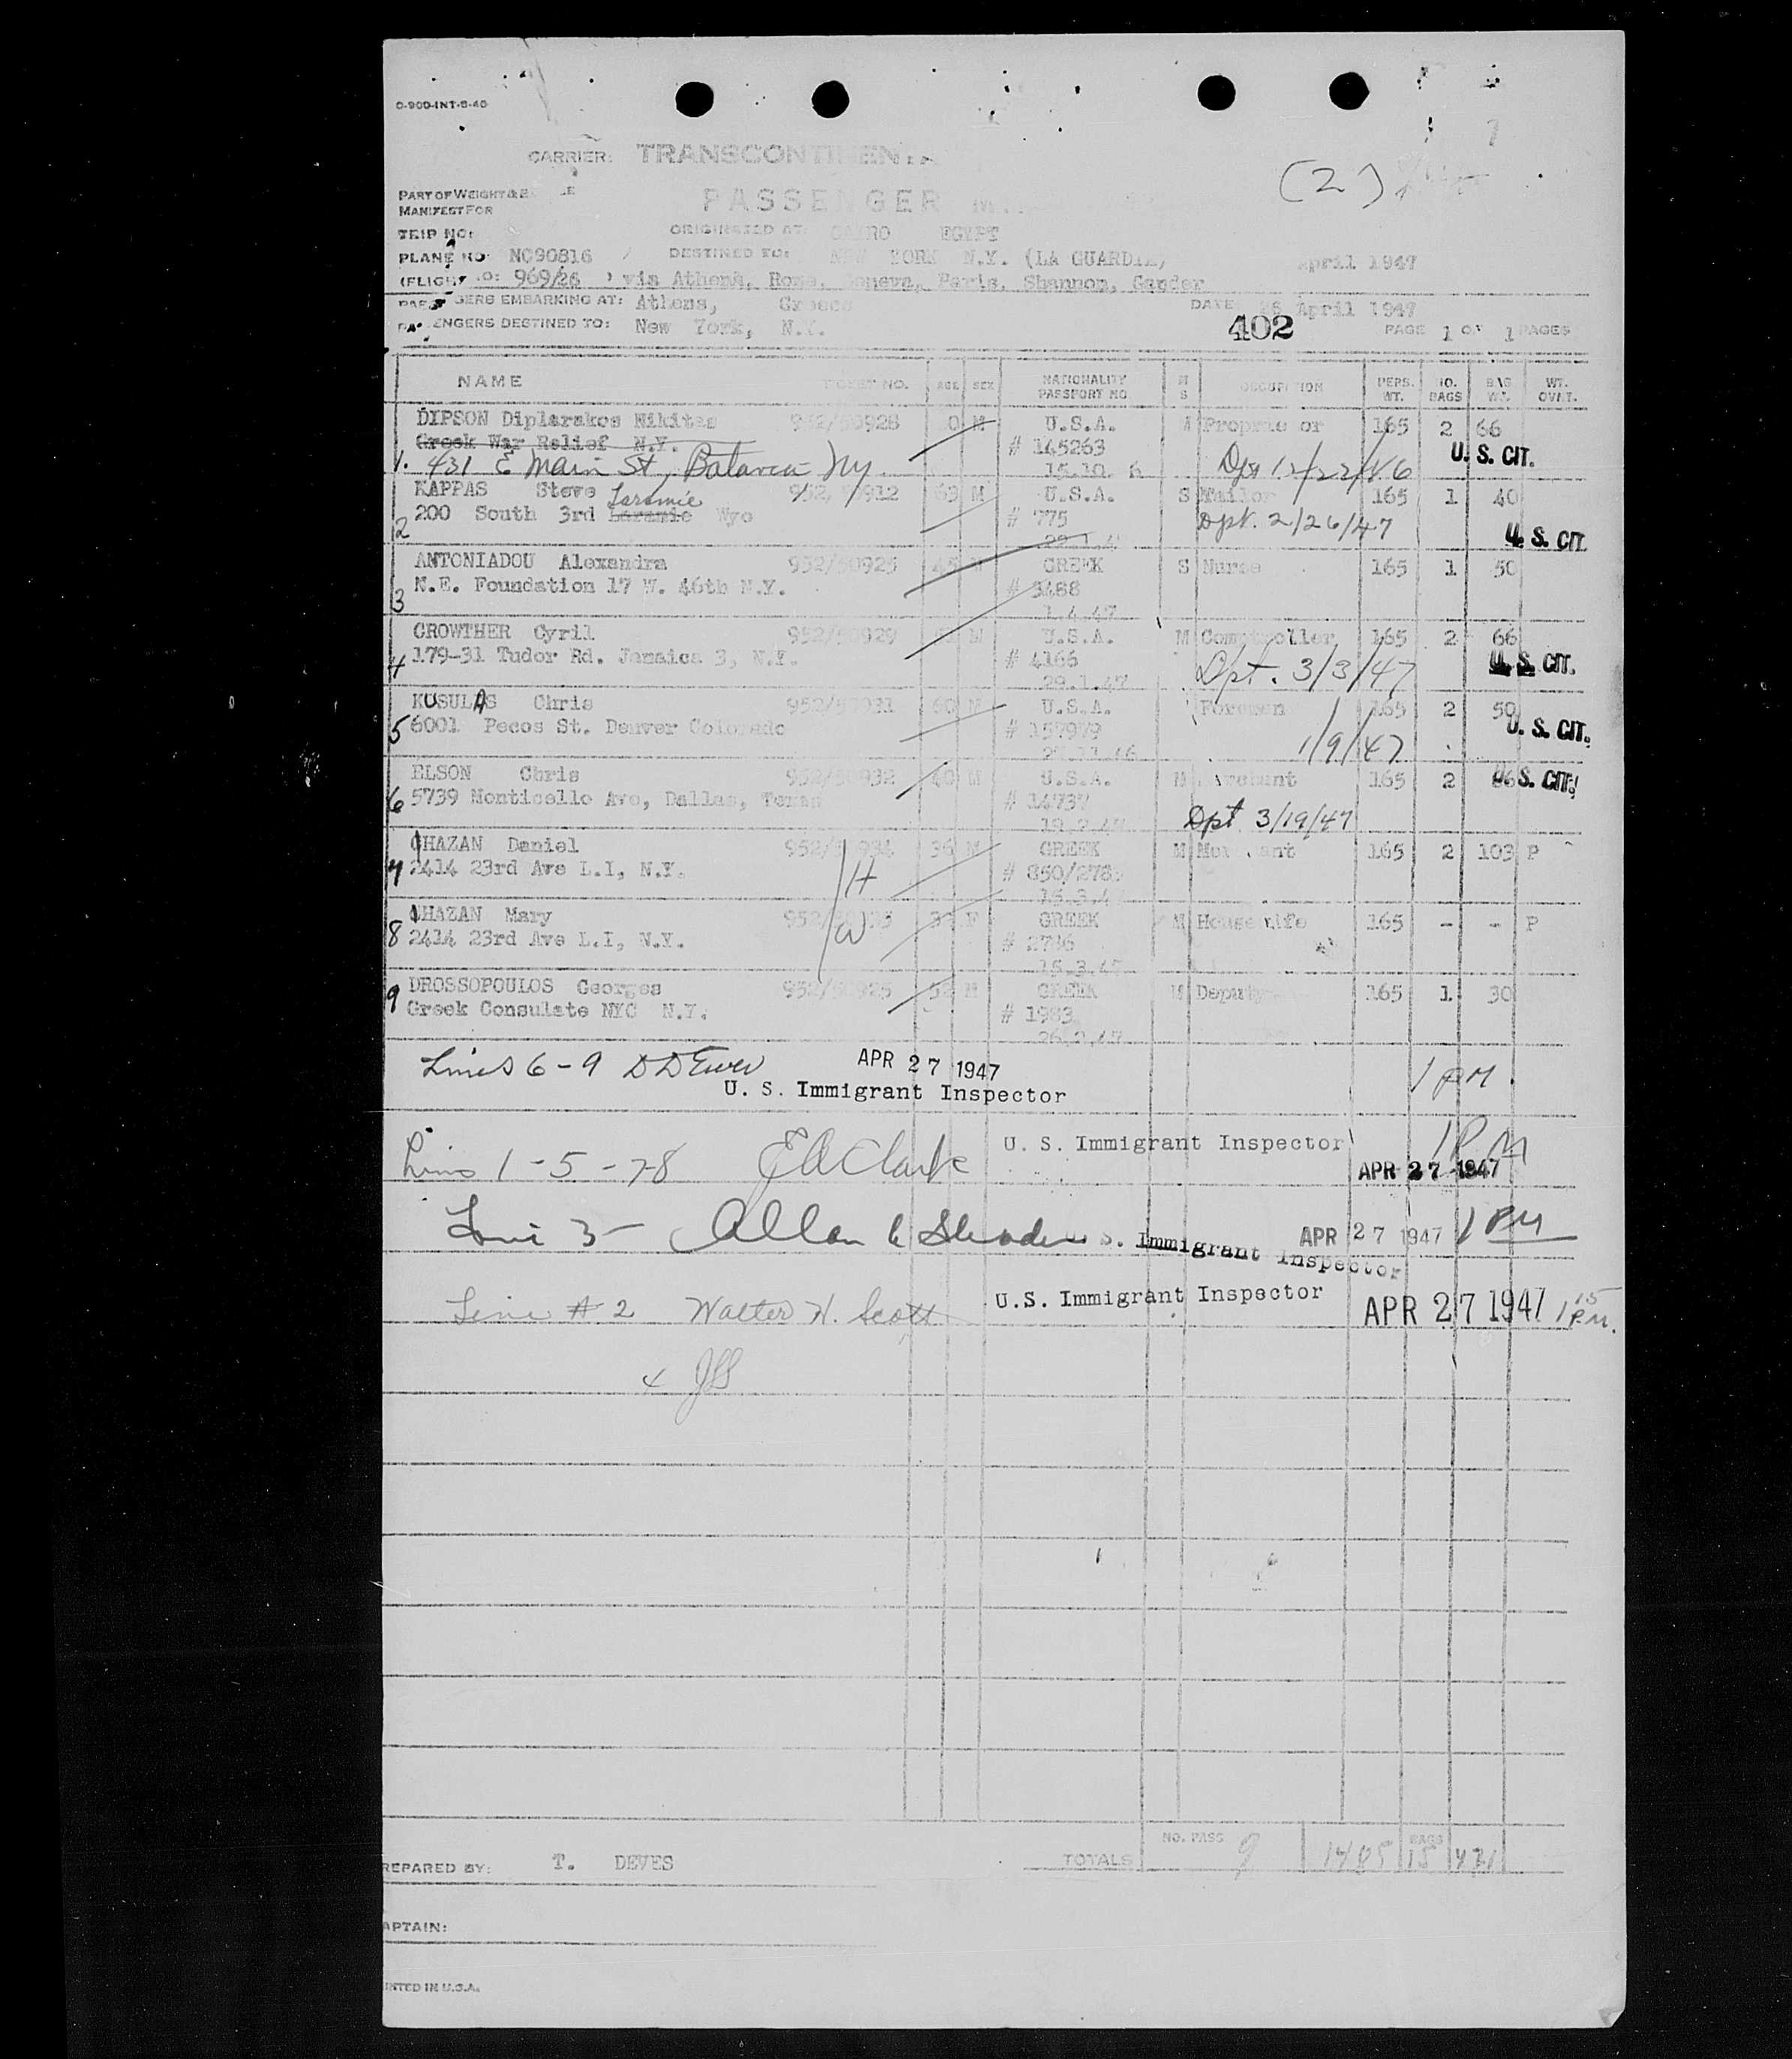 O-900-INT-5-46
CARRIER: TRANSCONTINENTA
PART OF WEIGHT &
MANIFEST FOR
PASSENGER
(2)
TRIP NO:
ORIGINATED AT: CAIRO EGYPT
PLANE NO: NC90816
DESTINED TO: NEW YORK N.Y. (LA GUARDIA)
April 1947
(FLIGHT NO: 969/26 ) via Athens, Rome, Geneva, Paris, Shannon, Gander
PASSENGERS EMBARKING AT: Athens, Greece
DATE 26 April 1947
PASSENGERS DESTINED TO: New York, N.Y.
402
PAGE 1 OF 1 PAGES
NAME TICKET NO. AGE SEX NATIONALITY PASSPORT NO M S OCCUPATION PERS. WT. NO. BAGS BAG WT. WT. OVWT.
DIPSON Diplarakos Nikitas 952/50928 M U.S.A. M Proprietor 165 2 66
Greek War Relief N.Y. # 145263 U. S. CIT.
1. 431 E Main St, Batavia NY 12/22/46
KAPPAS Steve 952/50912 63 M U.S.A. S Tailor 165 1 40
Laramie
2 200 South 3rd Laramie Wyo # 775 Dpt. 2/26/47
U. S. CIT.
ANTONIADOU Alexandra 952/50923 GREEK S Nurse 165 1 50
3 N.E. Foundation 17 W. 46th N.Y. # 3488
1.4.47
CROWTHER Cyril 952/50929 M U.S.A. M Comptroller 165 2 66
4 179-31 Tudor Rd. Jamaica 3, N.Y. # 4166 Dpt. 3/3/47 U. S. CIT.
29.1.47
KUSULAS Chris 952/50931 60 M U.S.A. Foreman 165 2 50
5 6001 Pecos St. Denver Colorado # 157979 U. S. CIT.
1/9/47
ELSON Chris 952/50932 40 M U.S.A. M 165 2 U. S. CIT.
6 5739 Monticello Ave, Dallas, Texas # 14737
Dpt 3/19/47
CHAZAN Daniel 952/50934 36 M GREEK M Merchant 165 2 103 P
7 2414 23rd Ave L.I, N.Y. H
15.3.47
CHAZAN Mary 952/50935 F GREEK M Housewife 165 - - P
8 2414 23rd Ave L.I, N.Y. W # 2786
15.3.47
DROSSOPOULOS Georges 952/50925 52 M GREEK M Deputy 165 1 30
9 Greek Consulate NYC N.Y. # 1983
26.2.47
Lines 6-9 APR 27 1947 1 PM.
U. S. Immigrant Inspector
Lines 1-5-7-8 E A Clark U. S. Immigrant Inspector 1 PM
APR 27 1947
Line 3- Allan U. S. Immigrant Inspector APR 27 1947 1 PM
Line # 2 Walter H. Scott U.S. Immigrant Inspector APR 27 1947 1 15 P.M.
NO. PASS 9 1485 BAGS 15 471
TOTALS
REPARED BY: T. DEVES
APTAIN:
INTED IN U.S.A.